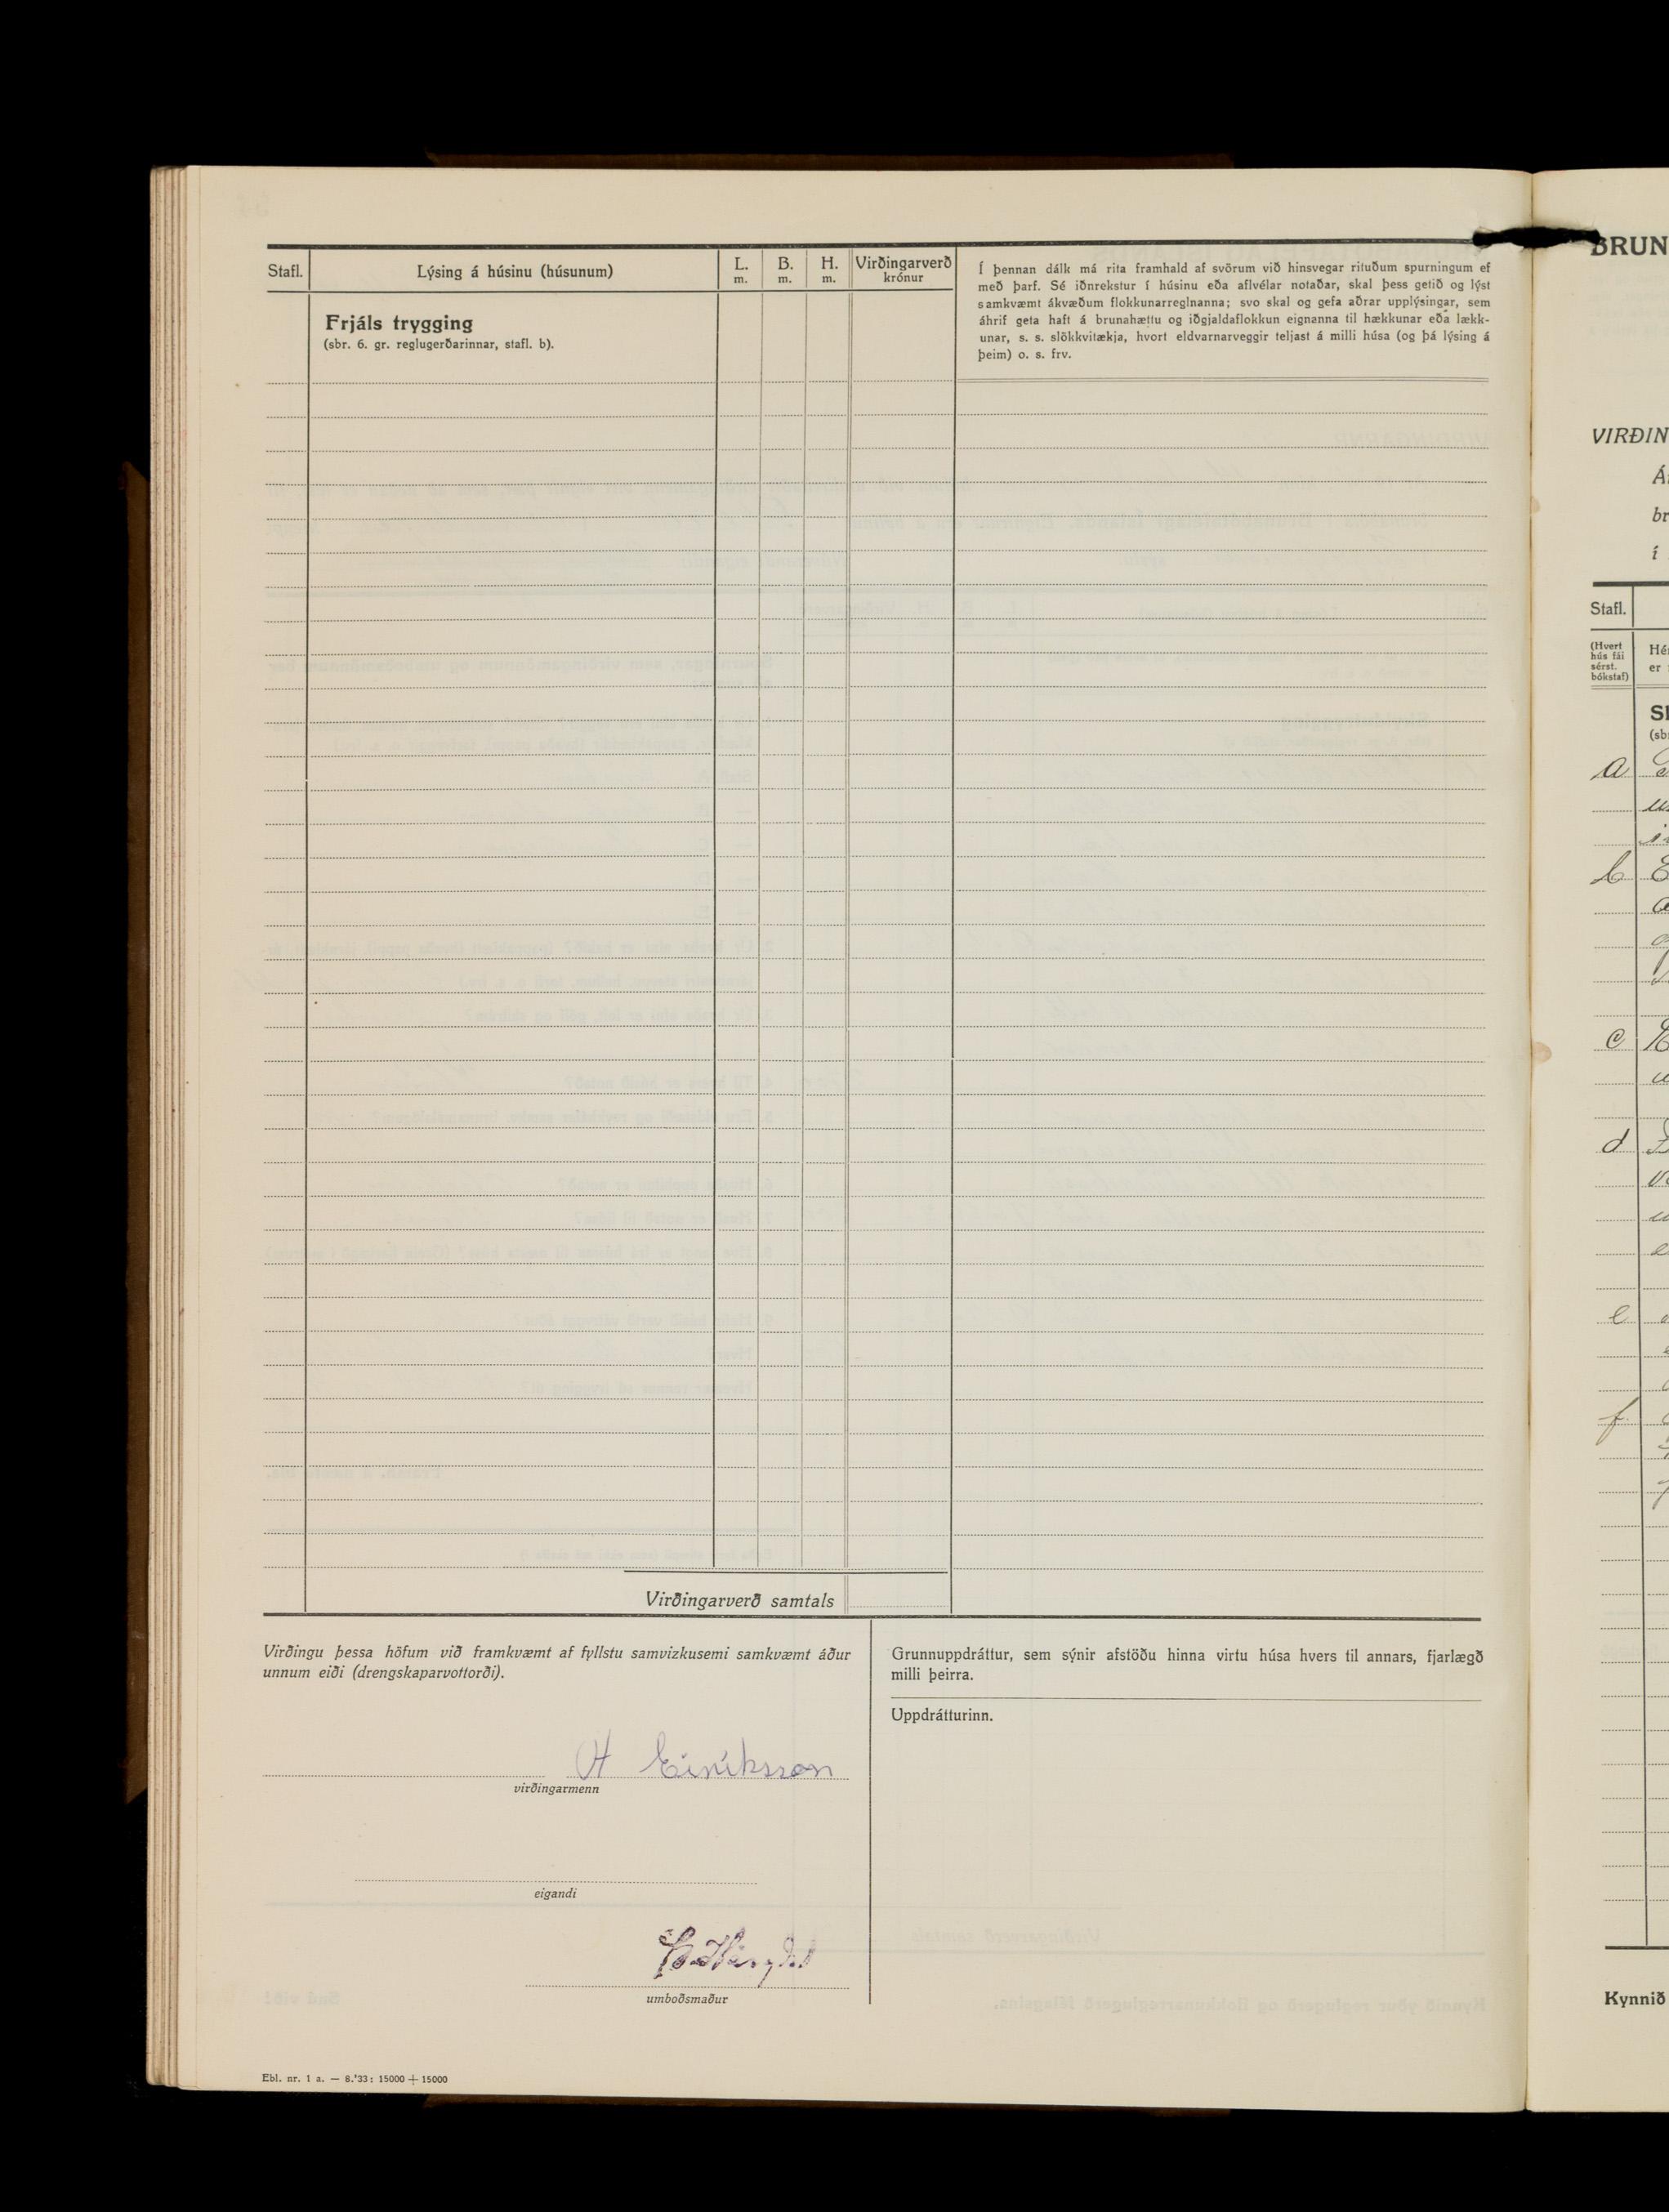 Stafl.
Lýsing á húsinu (húsunum)
L.
m.
B.
m.
H.
m.
Virðingarverð
krónur
Í þennan dálk má rita framhald af svörum við hinsvegar rituðum spurningum ef
með þarf. Sé iðnrekstur í húsinu eða aflvélar notaðar, skal þess getið og lýst
samkvæmt ákvæðum flokkunarreglnanna; svo skal og gefa aðrar upplýsingar, sem
áhrif geta haft á brunahættu og iðgjaldaflokkun eignanna til hækkunar eða lækk-
unar, s. s. slökkvitækja, hvort eldvarnarveggir teljast á milli húsa (og þá lýsing á
þeim) o. s. frv.
Frjáls trygging
(sbr. 6. gr. reglugerðarinnar, stafl. b).
Virðingarverð samtals
Virðingu þessa höfum við framkvæmt af fyllstu samvizkusemi samkvæmt áður
unnum eiði (drengskaparvottorði).
H Eiríksson
virðingarmenn
eigandi
umboðsmaður
Grunnuppdráttur, sem sýnir afstöðu hinna virtu húsa hvers til annars, fjarlægð
milli þeirra.
Uppdrátturinn.
Ebl. nr. 1 a. — 8.'33: 15000 + 15000
BRUN
VIRÐIN
br
í
Stafl.
(Hvert
hús fái
sérst.
bókstaf)
er
(sb
a
b
c
d
e
f
Kynnið